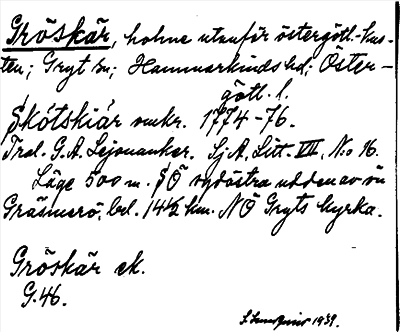 Gröskär, holme utanför östergötl.-kus-
ten; Gryt sn; Hammarkinds hd; Öster-
götl. l.
Skötskiär omkr. 1774-76.
Tral. G. A. Lejonanker. Sj A, Litt. VII, No 16.
Läge 500 m. SÖ sydöstra udden av ön
Gräsmarö, bel. 14½ km. NÖ Gryts kyrka.
Gröskär ek.
G. 46.
1939.